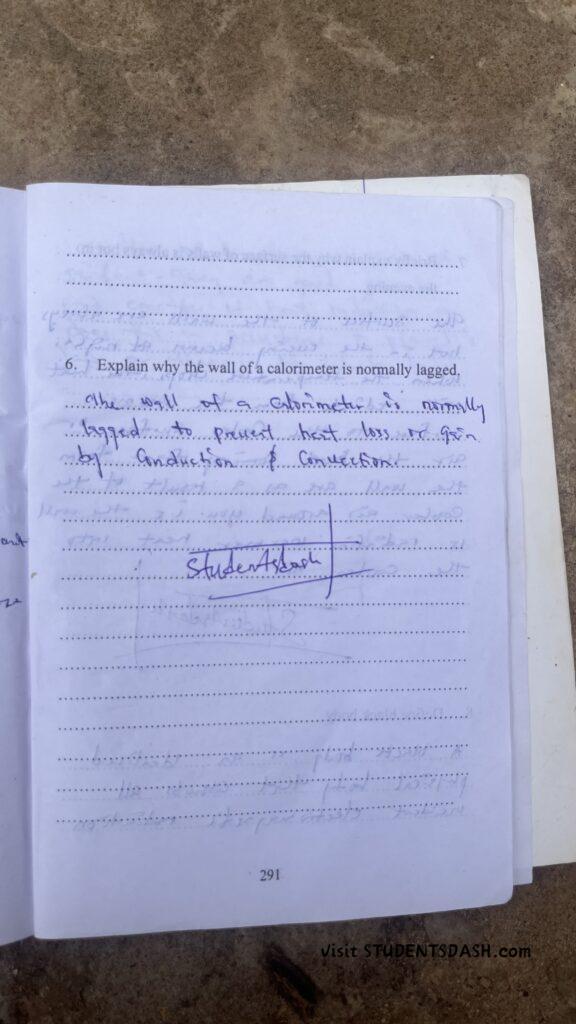 6. Explain why the wall of a calorimeter is normally lagged.
The wall of a calorimeter is normally
lagged to prevent heat loss or gain
by Conduction & Convection.
Studentsdash
291
Visit STUDENTSDASH.com